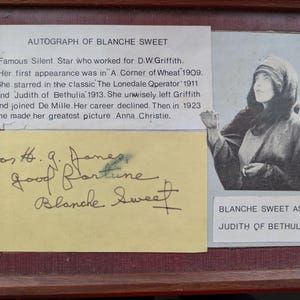 AUTOGRAPH OF BLANCHE SWEET
Famous Silent Star who worked for D.W.Griffith.
Her first appearance was in "A Corner of Wheat" 1909.
She starred in the classic 'The Lonedale Operator' 1911
and 'Judith of Bethulia' 1913. She unwisely left Griffith
and joined De Mille. Her career declined. Then in 1923
she made her greatest picture Anna Christie.
H. G. Jones,
good fortune
Blanche Sweet
BLANCHE SWEET AS
JUDITH OF BETHUL